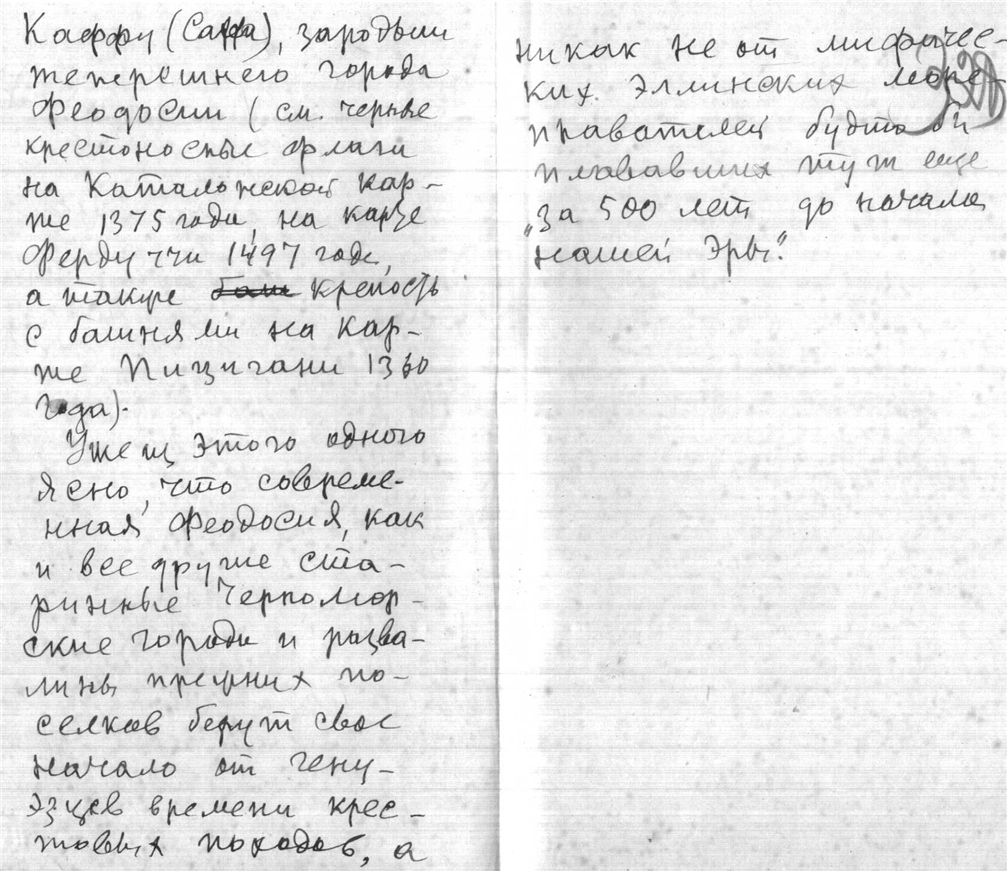 Каффу (Caffa), зародыш
теперешнего города
Феодосии (см. черные
крестоносные флаги
на Каталонской кар-
те 1375 года, на карте
Фердуччи 1497 года,
а также крепость
с башнями на кар-
те Пицигани 1360
года).
Уже из этого одного
ясно, что совреме-
нная Феодосия, как
и все другие ста-
ринные Черномор-
ские города и разва-
лины прежних по-
селков берут свое
начало от гену-
эзцев времени крес-
товых походов, а
никак не от мифичес-
ких Эллинских море-
правателей будто бы
плававших тут еще
"за 500 лет до начала
нашей Эры".